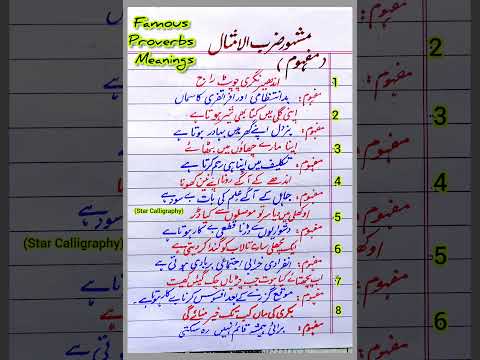 Famous
Proverbs
Meanings
مشہور ضرب الامثال
(مفہوم)
1 اندھیر نگری چوپٹ راج
مفہوم: بدانتظامی اور افراتفری کا سماں
2 اپنی گلی میں کتا بھی شیر ہوتا ہے
مفہوم: بزدل اپنے گھر میں بہادر ہوتا ہے
3 اپنا مارے چھاؤں میں بٹھائے
مفہوم: تکلیف میں اپنا ہی رحم کرتا ہے
4 اندھے کے آگے رونا اپنے نین کھونا
مفہوم: جاہل کے آگے علم کی بات بے سود ہے
(Star Calligraphy)
5 اوکھلی میں دیا سر تو موسلوں سے کیا ڈر
مفہوم: دشواریوں سے ڈرنا قطعی بے کار ہوتا ہے
6 ایک مچھلی سارے تالاب کو گندا کر دیتی ہے
مفہوم: انفرادی خرابی اجتماعی بربادی ہوتی ہے
7 اب پچھتائے کیا ہوت جب چڑیاں چگ گئیں کھیت
مفہوم: موقع گزرنے کے بعد افسوس کرنا بے کار ہوتا ہے۔
8 بکری کی ماں کب تک خیر منائے گی
مفہوم: برائی ہمیشہ قائم نہیں رہ سکتی
(Star Calligraphy)
3
4
5
6
2
3
4
5
6